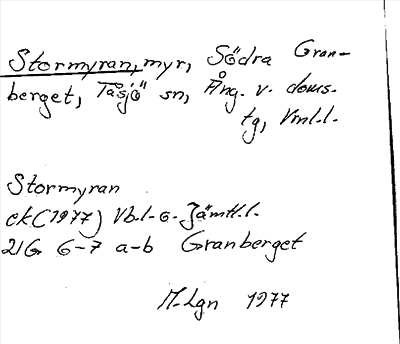 Stormyran, myr, Södra Gran-
berget, Tåsjö sn, Ång. v. doms-
tg, Vnl.l.
Stormyran
ek(1977) Vb.l-o-Jämtl.l.
21G 6-7 a-b Granberget
M.Lgn 1977